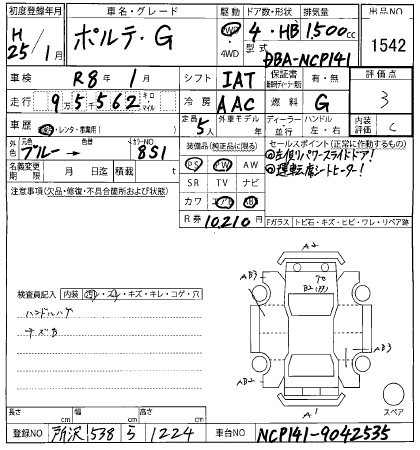 初度登録年月 車名・グレード 駆動 ドア数・形状 排気量 出品NO
H 25/1月 ポルテ・G 2WD 4WD 4・HB 1,500cc 1542
型式 DBA-NCP141
車検 R8年1月 シフト IAT 保証書 有・無 評価点
走行 95,562 キロ マイル 冷房 AAC 燃料 G 3
車歴 ・レンタ・事業用( ) 定員 5人 外車モデル 年 ディーラー 並行 ハンドル 左・右 内装評価 C
外色 元色 ブルー → 色替 カラーNO 8S1 装備品(純正品に限る) セールスポイント(正常に作動するもの)
名義変更期限 月 日迄 積載 t PS PW AW ◎左側パワースライドドア!
SR TV ナビ ◎運転席シートヒーター!
注意事項(欠品・修復・不具合箇所および状態) カワ エアB
R券 10,210円 Fガラス トビ石・キズ・ヒビ・ワレ・リペア跡
A2
AB3 70 AB3
B2
検査員記入 内装 ・スレ・キズ・キレ・コゲ・穴
ハンドルハゲ
キズB
AB3
AB2
A1
スペア
長さ cm 幅 cm 高さ cm
登録NO 所沢 538 ら 1224 車台NO NCP141-9042535